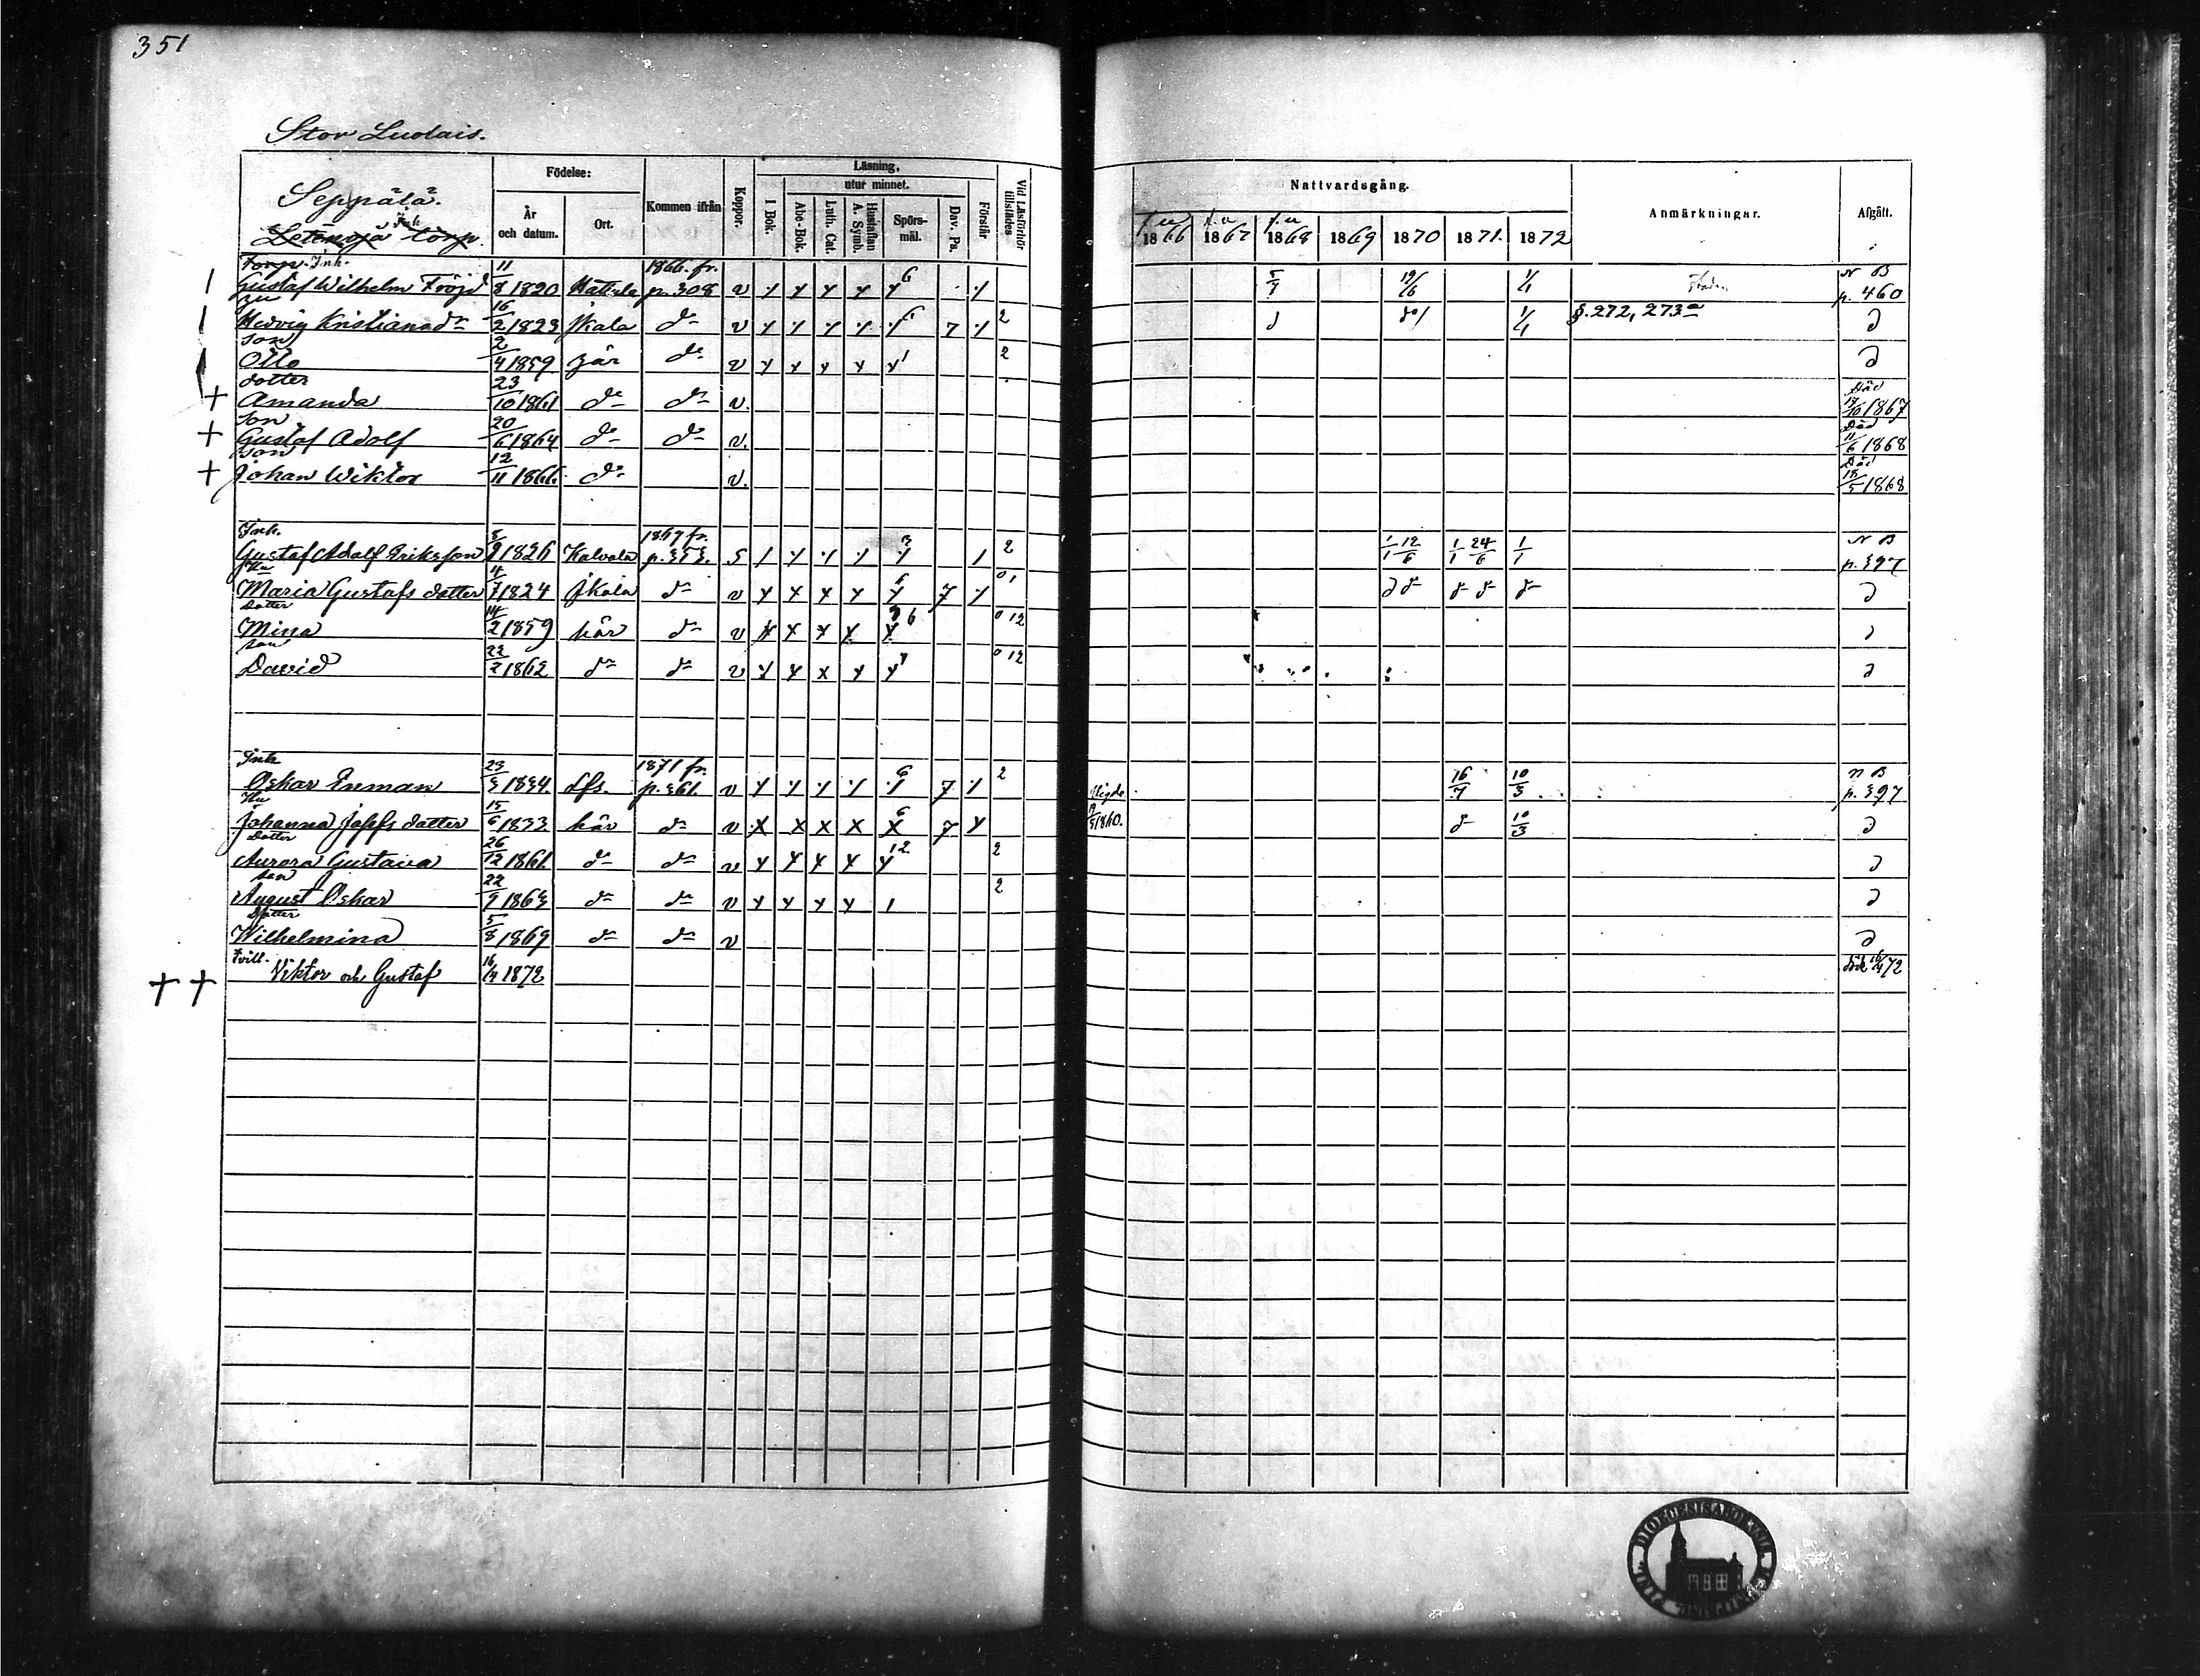 351
Stor Luolais.
Seppälä.
Inh.
torp.
Födelse:
År och datum.
Ort.
Kommen ifrån
Koppor.
Läsning,
utur minnet.
I Bok.
Abc-Bok.
Luth. Cat.
Hustaflan A. Symb.
Spörsmål.
Dav. Ps.
Förstår
Vid Läsförhör tillstädes
Nattvardsgång.
1866 1867 1868 1869 1870 1871. 1872
Anmärkningar.
Afgått.
Torp. Inh.
Gustaf Wilhelm Fröjd 11/8 1820 Hattula 1866. fr. p. 308 v 6 5/7 19/6 1/1 N B p. 460
Hu
Hedvig Kristiansdr 16/2 1823 Jkala do v 7 2 1/1 §. 272, 273
Son
Otto 2/4 1859 här do v 2
dotter
Amanda 23/10 1861 do do v. 1867
Son
Gustaf Adolf 20/6 1864 do do v. Död 11/6 1868
Son
Johan Wiktor 12/11 1866. do v. Död 1868
Inh.
Gustaf Adolf Eriksson 1826 Kalvola 1867 fr. 2 1/1 12/6 1/1 24/6 1/1 N B p. 397
Hu
Maria Gustafs dotter 4/7 1824 Jkala do v 7 01
Dotter
Mina 14/2 1859 här do v 6 0 12
Son
David 22/2 1862 do do v 0 12
Inh
Oskar Enman 23/3 1834. dfs. 1871 fr. p. 361. v 6 7 2 16/7 10/3 N B p. 397
Hu
Johanna Josefs dotter 15/6 1833 här do v 6 7 Vigde 1860. 10/3
Dotter
Aurora Gustava 26/12 1861. do do v 12 2
Son
August Oskar 22/9 1863 do do v 2
Dotter
Wilhelmina 5/8 1869 do do v
Tvill.
Viktor och Gustaf 16/4 1872 döde 16/4 72
DIOECESISABOENSIS